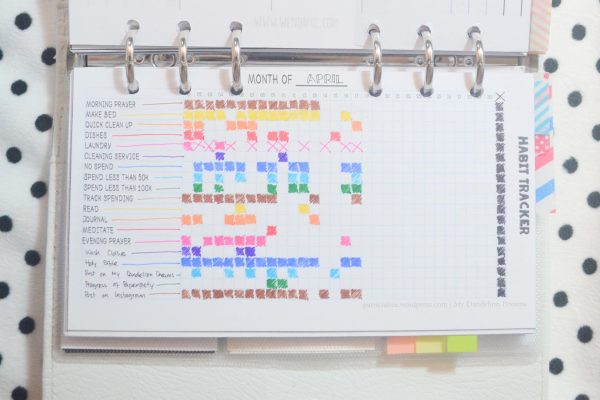 MONTH OF APRIL
MORNING PRAYER
MAKE BED
QUICK CLEAN UP
DISHES
LAUNDRY
CLEANING SERVICE
NO SPEND
SPEND LESS THAN 50K
SPEND LESS THAN 100K
TRACK SPENDING
READ
JOURNAL
MEDITATE
EVENING PRAYER
Holy Bible
Post on My Dandelion Dreams
Progress of
Post on Instagram
HABIT TRACKER
My Dandelion Dreams